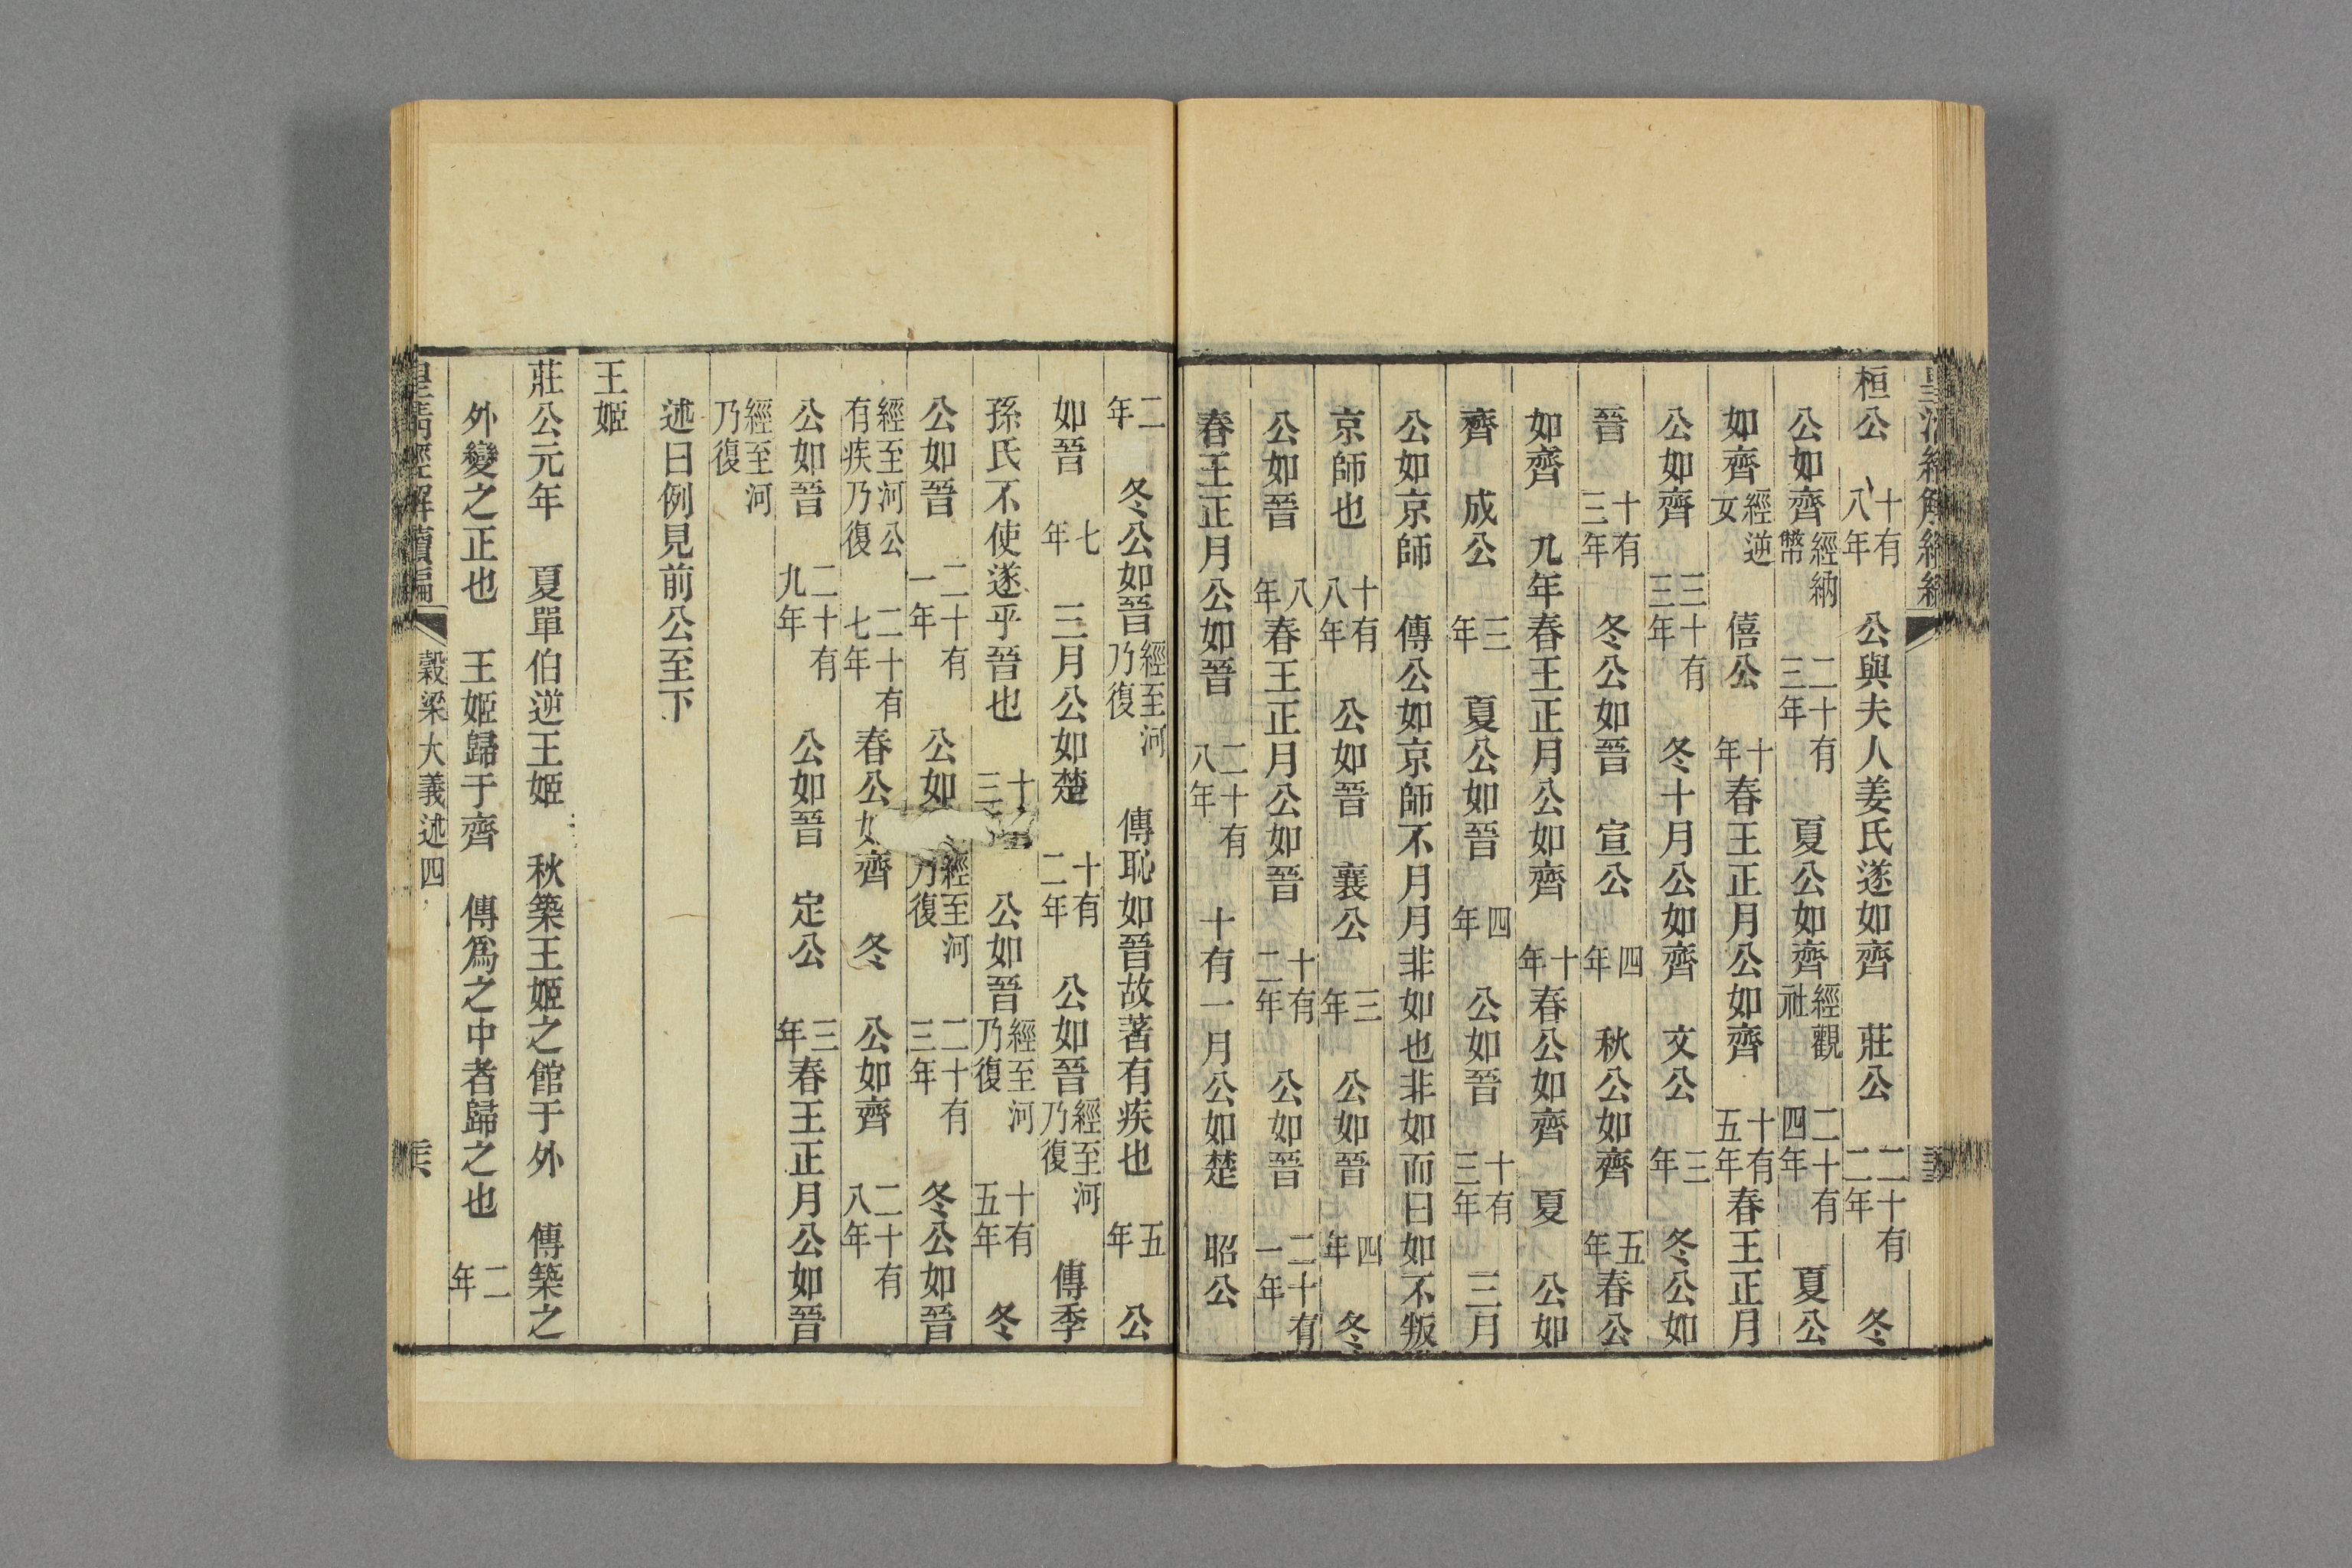 桓公 十有八年 公與夫人姜氏遂如齊 莊公 二十有二年 冬
公如齊 經納幣 二十有三年 夏公如齊 經觀社 二十有四年 夏公
如齊 經逆女 僖公 十年 春王正月公如齊 十有五年 春王正月
公如齊 三十有三年 冬十月公如齊 文公 三年 冬公如
晉 十有三年 冬公如晉 宣公 四年 秋公如齊 五年 春公
如齊 九年春王正月公如齊 十年 春公如齊 夏 公如
齊 成公 三年 夏公如晉 四年 公如晉 十有三年 三月
公如京師 傳公如京師不月月非如也非如而曰如不叛
京師也 十有八年 公如晉 襄公 三年 公如晉 四年 冬
公如晉 八年 春王正月公如晉 十有二年 公如晉 二十有一年
春王正月公如晉 二十有八年 十有一月公如楚 昭公
二年 冬公如晉 經至河乃復 傳恥如晉故著有疾也 五年 公
如晉 七年 三月公如楚 十有二年 公如晉 經至河乃復 傳季
孫氏不使遂乎晉也 十三 公如晉 經至河乃復 十有五年 冬
公如晉 二十有一年 公如 經至河乃復 二十有三年 冬公如晉
經至河公有疾乃復 二十有七年 春公如齊 冬 公如齊 二十有八年
公如晉 二十有九年 公如晉 定公 三年 春王正月公如晉
經至河乃復
述曰例見前公至下
王姬
莊公元年 夏單伯逆王姬 秋築王姬之館于外 傳築之
外變之正也 王姬歸于齊 傳爲之中者歸之也 二年
皇清經解續編 穀梁大義述四